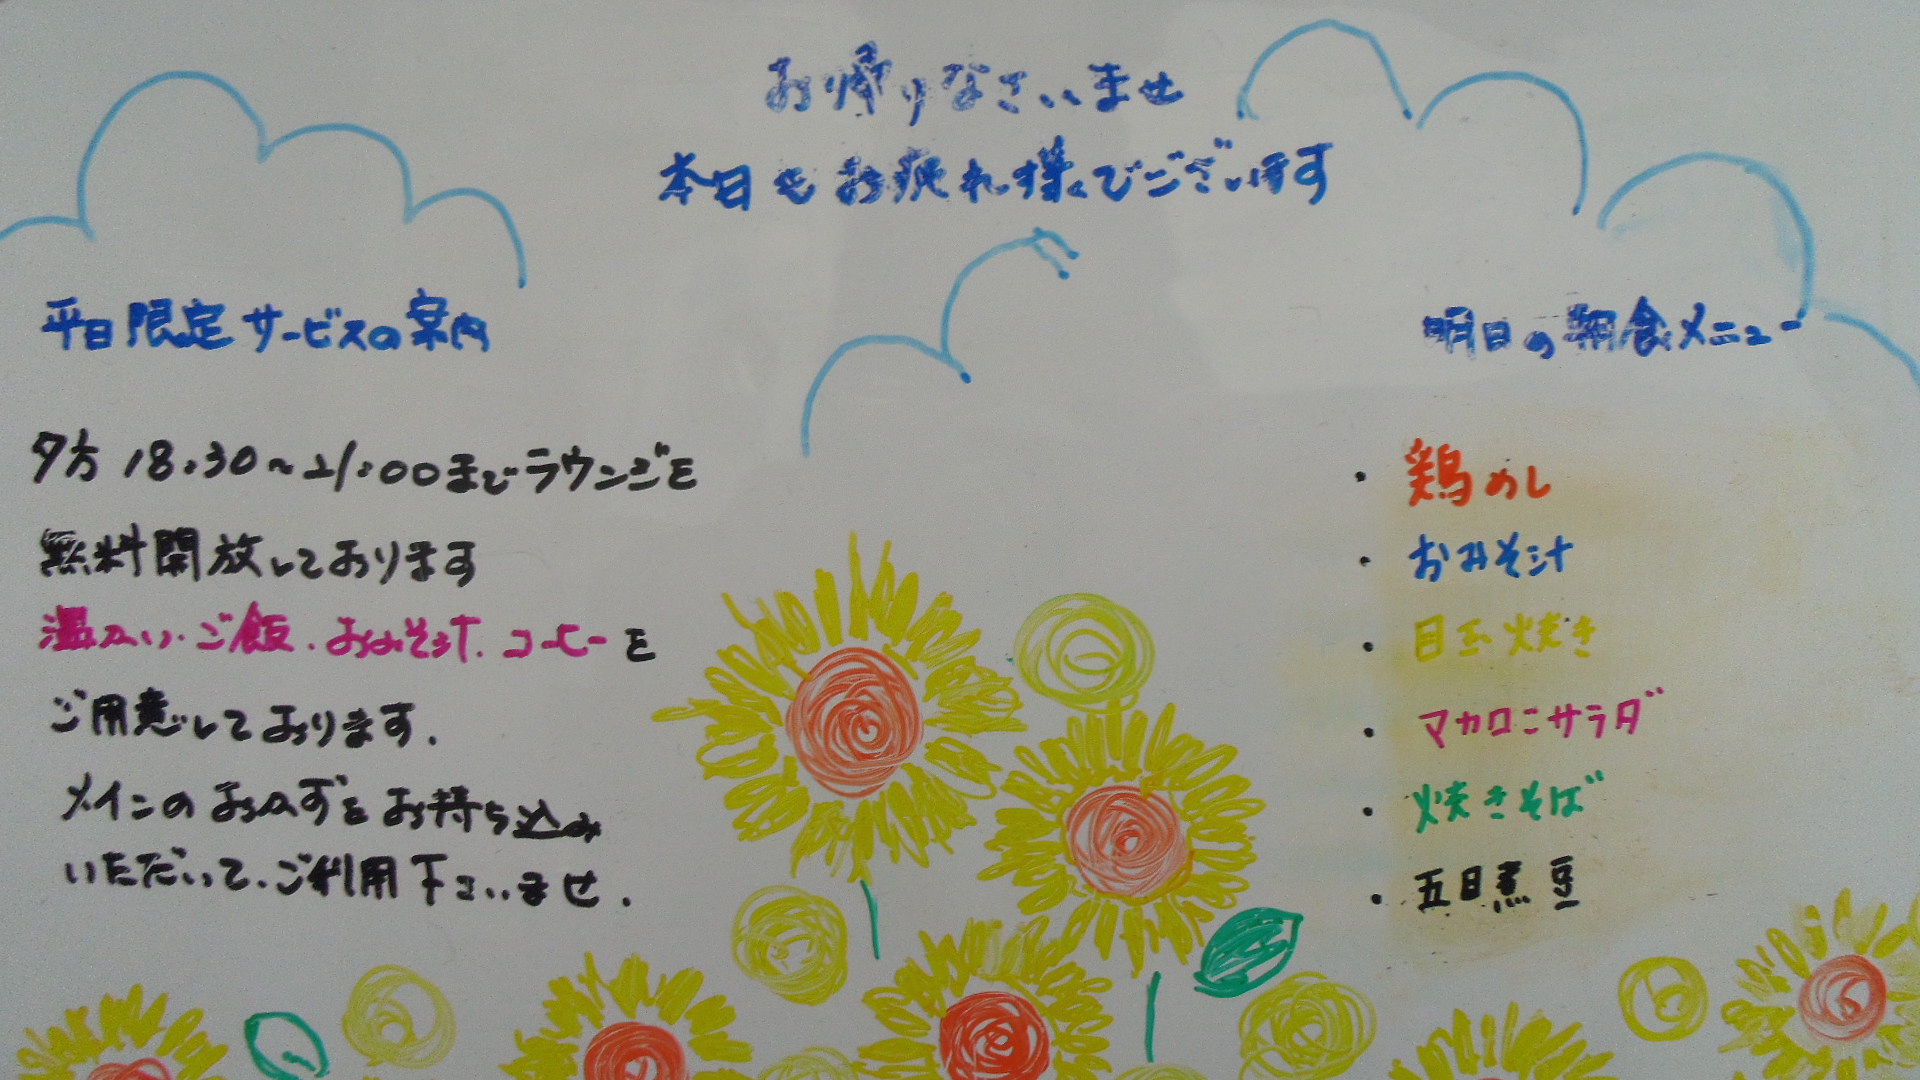 お帰りなさいませ
本日もお疲れ様でございます
平日限定サービスの案内
夕方18:30~21:00までラウンジを
無料開放しております
温かい・ご飯・おみそ汁・コーヒーを
ご用意しております.
メインのおかずをお持ち込み
いただいて、ご利用下さいませ.
明日の朝食メニュー
・鶏めし
・おみそ汁
・目玉焼き
・マカロニサラダ
・焼きそば
・五目煮豆